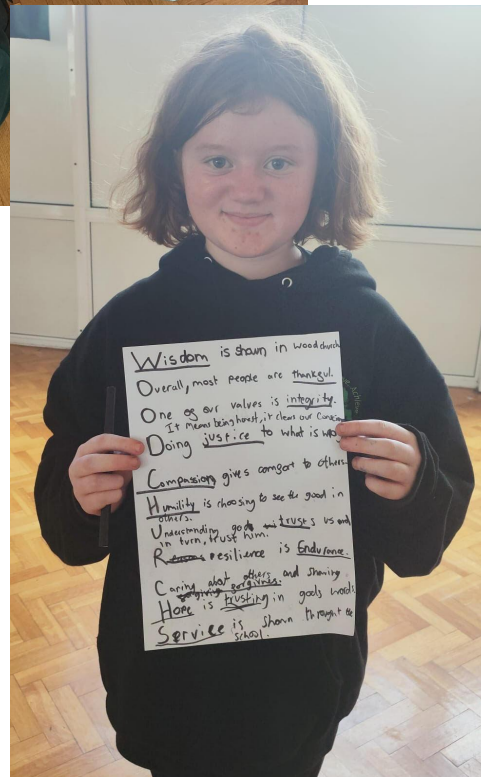 Wisdom is shown in Woodchurch
Overall, most people are thankful.
One of our values is integrity.
It means being honest, it clears our
Doing justice to what is
Compassion gives comfort to others.
Humility is choosing to see the good in
others.
Understanding god trusts us and
in turn, trust him.
resilience is Endurance.
Caring about others and showing
forgiveness.
Hope is trusting in gods words.
Service is shown throught the
school.